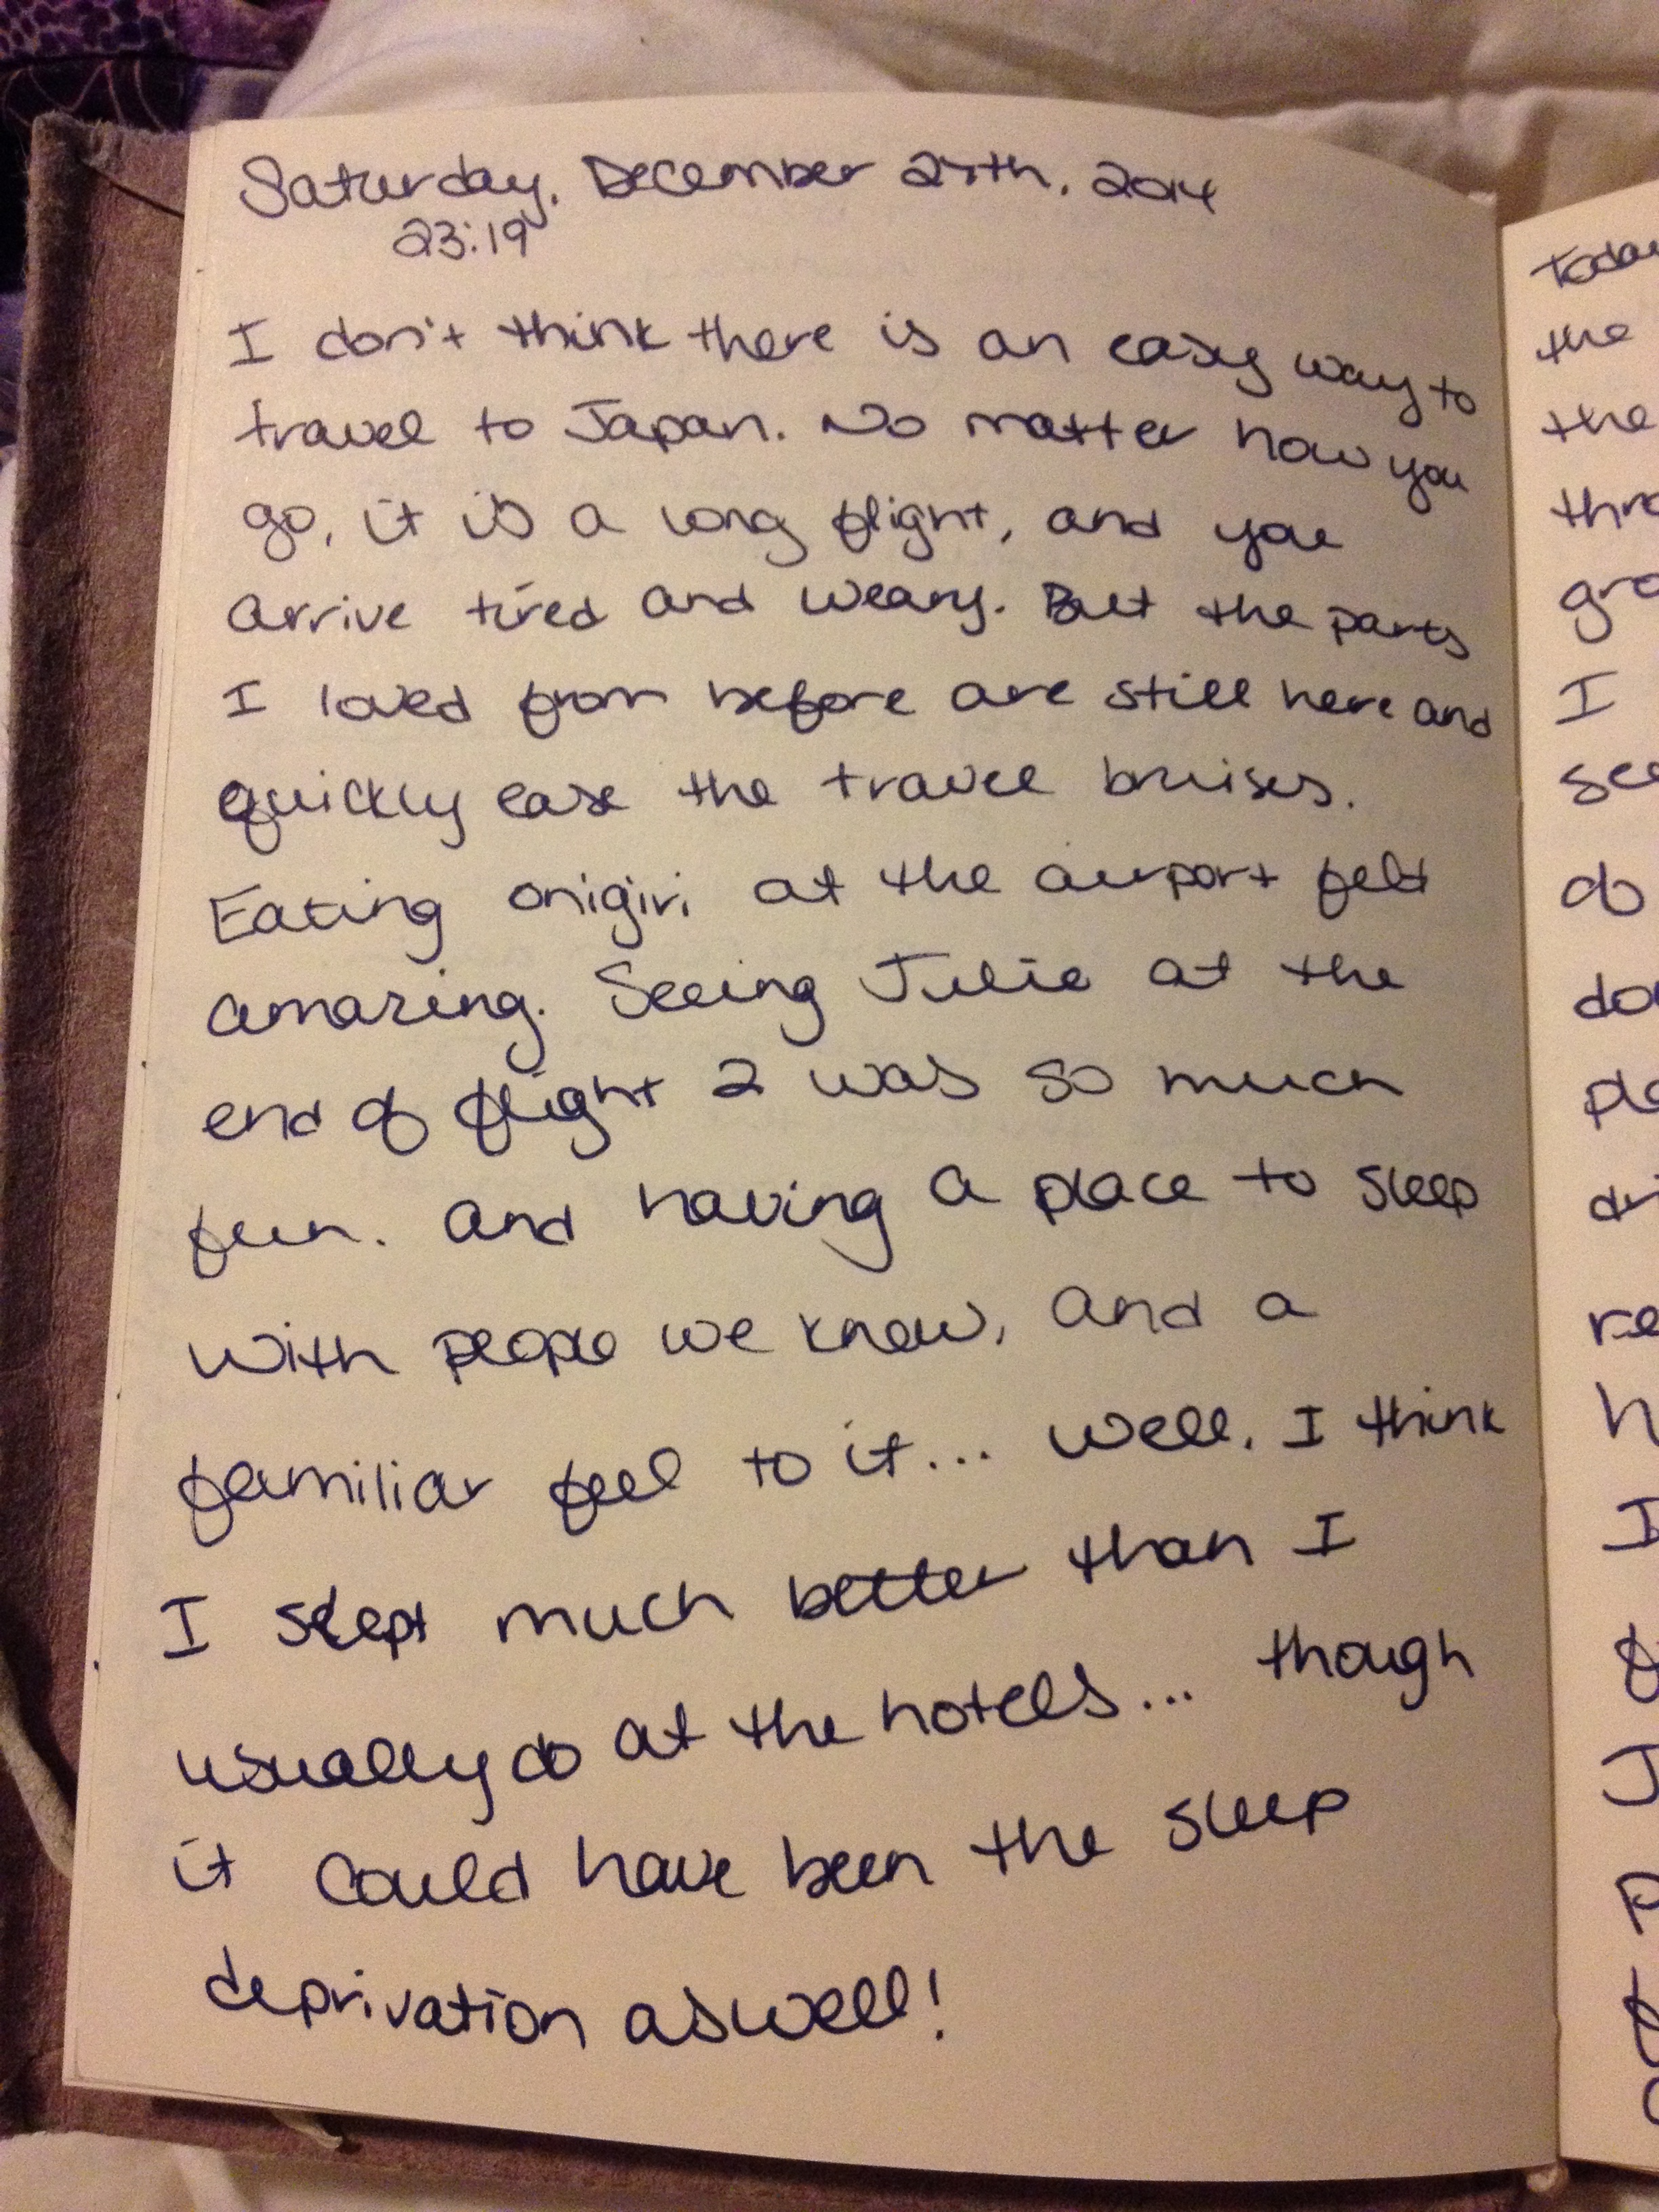 Saturday, December 27th, 2014
23:19
I don't think there is an easy way to
travel to Japan. No matter how you
go, it is a long flight, and you
arrive tired and weary. But the parts
I loved from before are still here and
quickly ease the travel bruises.
Eating onigiri at the airport felt
amazing. Seeing Julie at the
end of flight 2 was so much
fun. And having a place to sleep
with people we know, and a
familiar feel to it... well, I think
I slept much better than I
usually do at the hotels... though
it could have been the sleep
deprivation as well!
Today
the
the
I
of